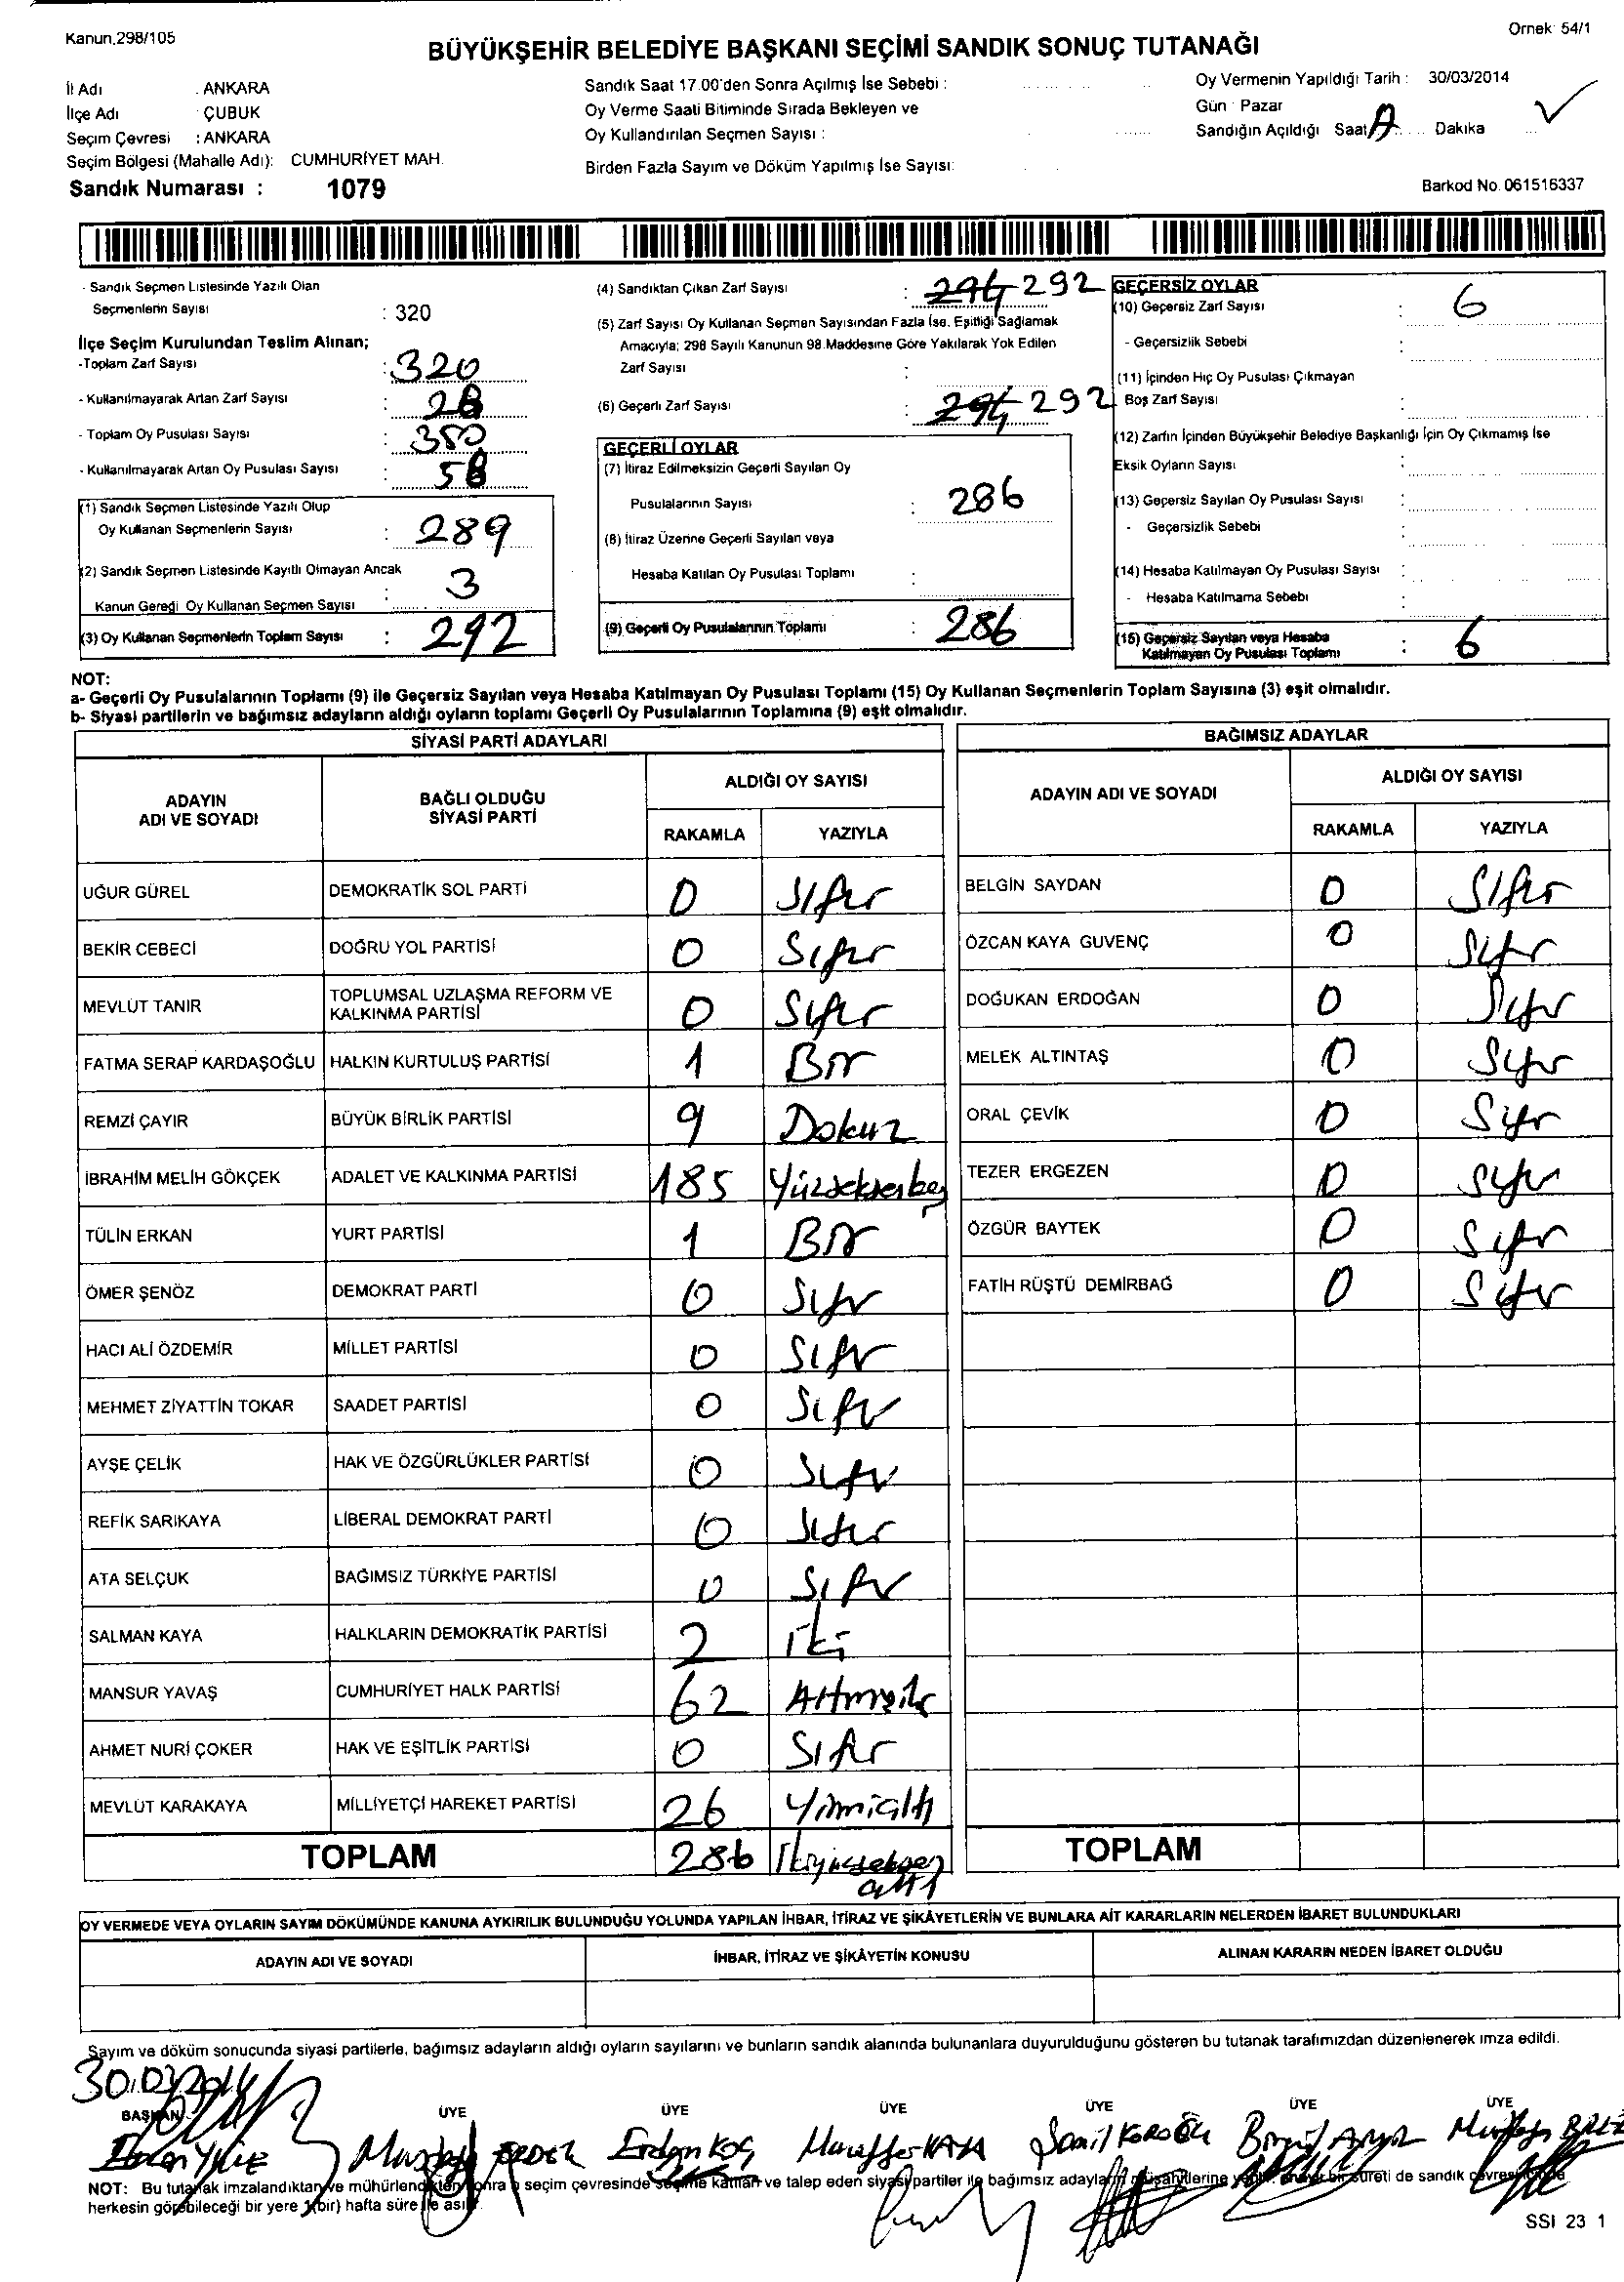 Kanun.298/105
Ornek 54/1
BÜYÜKŞEHİR BELEDİYE BAŞKANI SEÇİMİ SANDIK SONUÇ TUTANAĞI
İl Adı : ANKARA
İlçe Adı : ÇUBUK
Seçim Çevresi : ANKARA
Seçim Bölgesi (Mahalle Adı): CUMHURİYET MAH.
Sandık Numarası : 1079
Sandık Saat 17.00'den Sonra Açılmış İse Sebebi :
Oy Verme Saati Bitiminde Sırada Bekleyen ve
Oy Kullandırılan Seçmen Sayısı :
Birden Fazla Sayım ve Döküm Yapılmış İse Sayısı:
Oy Vermenin Yapıldığı Tarih : 30/03/2014
Gün : Pazar
Sandığın Açıldığı Saat Dakika
Barkod No. 061516337
- Sandık Seçmen Listesinde Yazılı Olan
Seçmenlerin Sayısı : 320
İlçe Seçim Kurulundan Teslim Alınan;
-Toplam Zarf Sayısı : 320
- Kullanılmayarak Artan Zarf Sayısı : 28
- Toplam Oy Pusulası Sayısı : 350
- Kullanılmayarak Artan Oy Pusulası Sayısı : 58
(1) Sandık Seçmen Listesinde Yazılı Olup
Oy Kullanan Seçmenlerin Sayısı : 289
(2) Sandık Seçmen Listesinde Kayıtlı Olmayan Ancak
Kanun Gereği Oy Kullanan Seçmen Sayısı : 3
(3) Oy Kullanan Seçmenlerin Toplam Sayısı : 292
(4) Sandıktan Çıkan Zarf Sayısı : 294 292
(5) Zarf Sayısı Oy Kullanan Seçmen Sayısından Fazla İse. Eşitliği Sağlamak
Amacıyla; 298 Sayılı Kanunun 98.Maddesine Göre Yakılarak Yok Edilen
Zarf Sayısı :
(6) Geçerli Zarf Sayısı : 294 292
GEÇERLİ OYLAR
(7) İtiraz Edilmeksizin Geçerli Sayılan Oy
Pusulalarının Sayısı : 286
(8) İtiraz Üzerine Geçerli Sayılan veya
Hesaba Katılan Oy Pusulası Toplamı :
(9) Geçerli Oy Pusulalarının Toplamı : 286
GEÇERSİZ OYLAR
(10) Geçersiz Zarf Sayısı : 6
- Geçersizlik Sebebi :
(11) İçinden Hiç Oy Pusulası Çıkmayan
Boş Zarf Sayısı :
(12) Zarfın İçinden Büyükşehir Belediye Başkanlığı İçin Oy Çıkmamış İse
Eksik Oyların Sayısı :
(13) Geçersiz Sayılan Oy Pusulası Sayısı :
- Geçersizlik Sebebi :
(14) Hesaba Katılmayan Oy Pusulası Sayısı :
- Hesaba Katılmama Sebebi :
(15) Geçersiz Sayılan veya Hesaba
Katılmayan Oy Pusulası Toplamı : 6
NOT:
a- Geçerli Oy Pusulalarının Toplamı (9) ile Geçersiz Sayılan veya Hesaba Katılmayan Oy Pusulası Toplamı (15) Oy Kullanan Seçmenlerin Toplam Sayısına (3) eşit olmalıdır.
b- Siyasi partilerin ve bağımsız adayların aldığı oyların toplamı Geçerli Oy Pusulalarının Toplamına (9) eşit olmalıdır.
SİYASİ PARTİ ADAYLARI
ADAYIN ADI VE SOYADI BAĞLI OLDUĞU SİYASİ PARTİ ALDIĞI OY SAYISI
RAKAMLA YAZIYLA
UĞUR GÜREL DEMOKRATİK SOL PARTİ 0 Sıfır
BEKİR CEBECİ DOĞRU YOL PARTİSİ 0 Sıfır
MEVLÜT TANIR TOPLUMSAL UZLAŞMA REFORM VE KALKINMA PARTİSİ 0 Sıfır
FATMA SERAP KARDAŞOĞLU HALKIN KURTULUŞ PARTİSİ 1 Bir
REMZİ ÇAYIR BÜYÜK BİRLİK PARTİSİ 9 Dokuz
İBRAHİM MELİH GÖKÇEK ADALET VE KALKINMA PARTİSİ 185 Yüzseksenbeş
TÜLİN ERKAN YURT PARTİSİ 1 Bir
ÖMER ŞENÖZ DEMOKRAT PARTİ 0 Sıfır
HACI ALİ ÖZDEMİR MİLLET PARTİSİ 0 Sıfır
MEHMET ZİYATTİN TOKAR SAADET PARTİSİ 0 Sıfır
AYŞE ÇELİK HAK VE ÖZGÜRLÜKLER PARTİSİ 0 Sıfır
REFİK SARIKAYA LİBERAL DEMOKRAT PARTİ 0 Sıfır
ATA SELÇUK BAĞIMSIZ TÜRKİYE PARTİSİ 0 Sıfır
SALMAN KAYA HALKLARIN DEMOKRATİK PARTİSİ 2 İki
MANSUR YAVAŞ CUMHURİYET HALK PARTİSİ 62 Altmışiki
AHMET NURİ ÇOKER HAK VE EŞİTLİK PARTİSİ 0 Sıfır
MEVLÜT KARAKAYA MİLLİYETÇİ HAREKET PARTİSİ 26 Yirmialtı
TOPLAM 286 İkiyüzseksen
altı
BAĞIMSIZ ADAYLAR
ADAYIN ADI VE SOYADI ALDIĞI OY SAYISI
RAKAMLA YAZIYLA
BELGİN SAYDAN 0 Sıfır
ÖZCAN KAYA GUVENÇ 0 Sıfır
DOĞUKAN ERDOĞAN 0 Sıfır
MELEK ALTINTAŞ 0 Sıfır
ORAL ÇEVİK 0 Sıfır
TEZER ERGEZEN 0 Sıfır
ÖZGÜR BAYTEK 0 Sıfır
FATİH RÜŞTÜ DEMİRBAĞ 0 Sıfır
TOPLAM
OY VERMEDE VEYA OYLARIN SAYIM DÖKÜMÜNDE KANUNA AYKIRILIK BULUNDUĞU YOLUNDA YAPILAN İHBAR, İTİRAZ VE ŞİKÂYETLERİN VE BUNLARA AİT KARARLARIN NELERDEN İBARET BULUNDUKLARI
ADAYIN ADI VE SOYADI İHBAR, İTİRAZ VE ŞİKÂYETİN KONUSU ALINAN KARARIN NEDEN İBARET OLDUĞU
Sayım ve döküm sonucunda siyasi partilerle, bağımsız adayların aldığı oyların sayılarını ve bunların sandık alanında bulunanlara duyurulduğunu gösteren bu tutanak tarafımızdan düzenlenerek imza edildi.
30.03.2014
BAŞKAN ÜYE ÜYE ÜYE ÜYE ÜYE ÜYE
Erdem Koç Muzaffer KAYA Şamil
NOT: Bu tutanak imzalandıktan ve mühürlendikten sonra o seçim çevresinde seçime katılan ve talep eden siyasi partiler ile bağımsız adayların müşahitlerine sureti de sandık çevresinde
herkesin görebileceği bir yere (bir) hafta süre ile asılır.
SSI 23 1